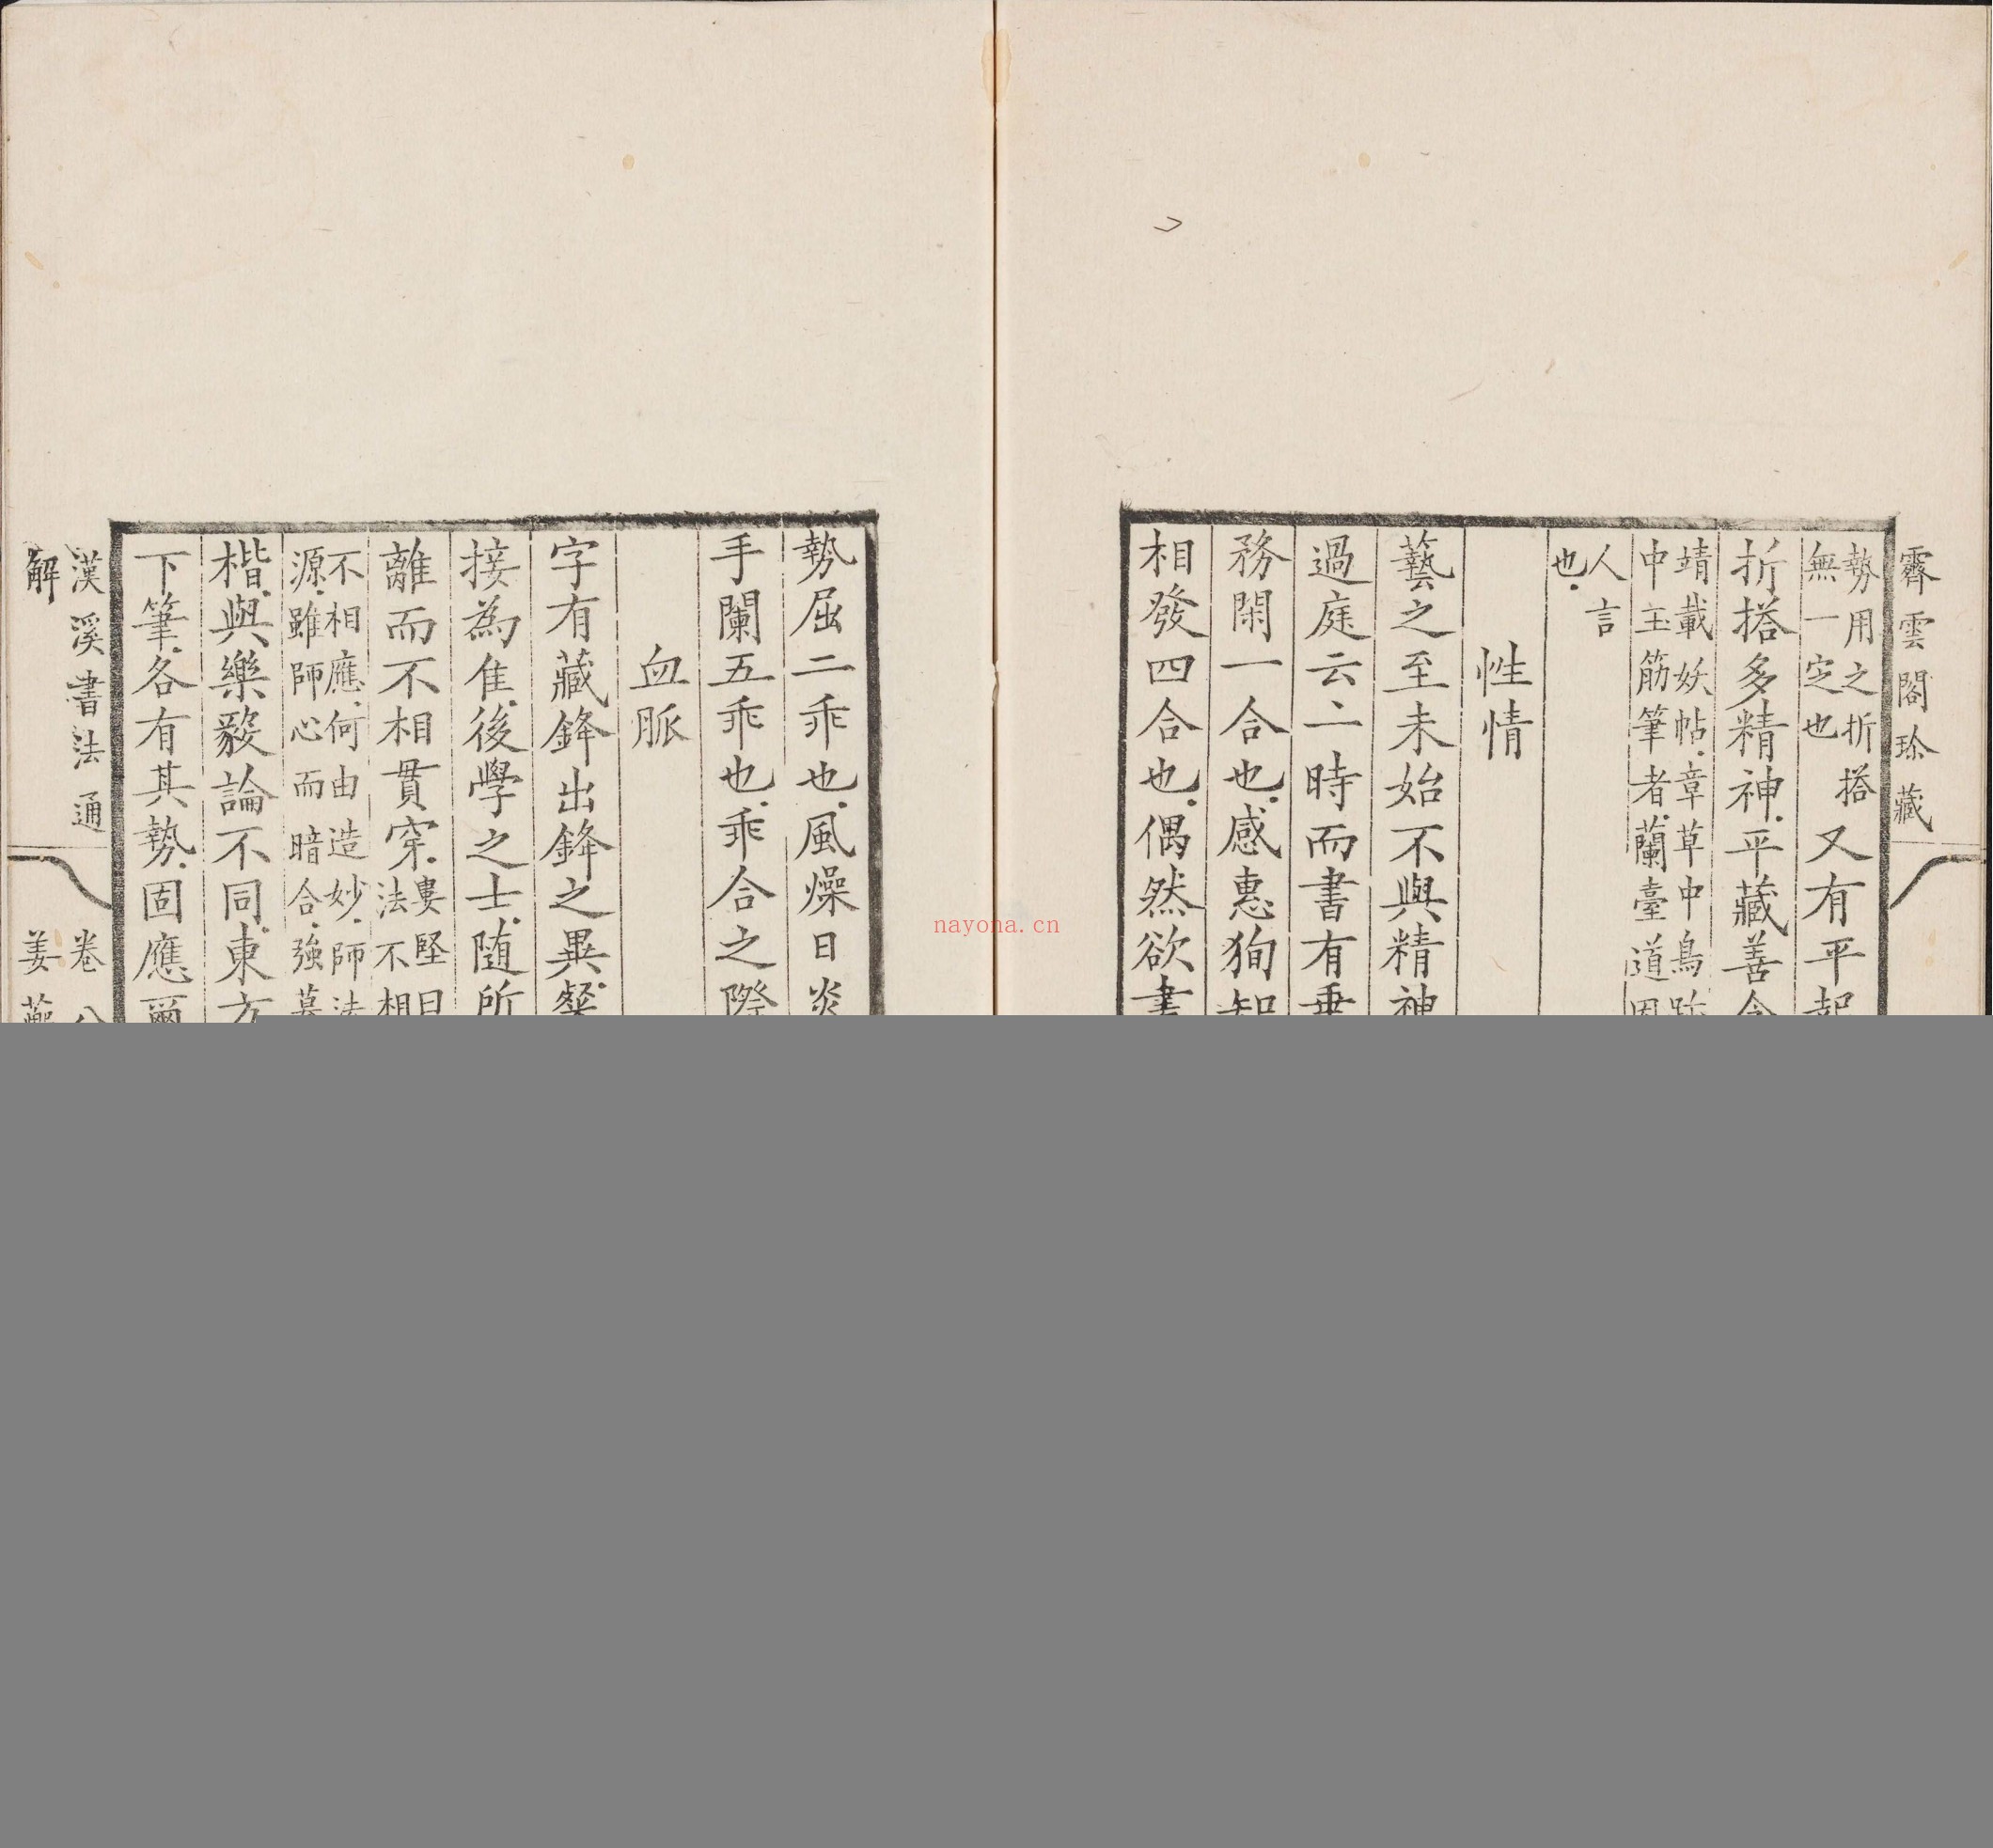 霽雲閣珍藏
勢用之折搭
無一定也
又有平起
折搭多精神平藏善含
靖載妖帖章草中鳥跡
中主筋筆者蘭臺道因
人言
也
性情
藝之至未始不與精神
過庭云一時而書有乖
務閑一合也感惠狥知
相發四合也偶然欲書
勢屈二乖也風燥日炎
手闌五乖也乖合之際
血脈
字有藏鋒出鋒之異粲
接為隹後學之士隨所
離而不相貫穿
婁堅曰
法不相
不相應何由造妙師法
源雖師心而暗合強
楷與樂毅論不同東方
下筆各有其勢固應爾
漢溪書法通
解
卷八
姜夔
nayona.cn